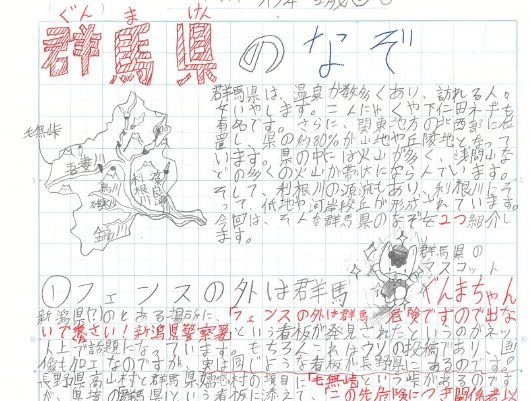 ぐんまけん
群馬県のなぞ
群馬県は、温泉が数多くあり、訪れる人々
をいやします。こんにゃくや下仁田ネギも
有名です。さらに、関東地方の北西部に位
置し、県の約80%が山地や丘陵地となって
います。県の中には火山が多く、浅間山な
どの多くの火山が県内にならんでいます。
そして、利根川の源流もあり、利根川にそ
って、低地や河岸段丘が形成されています。
今回は、そんな群馬県のなぞを2つ紹介し
ます。
毛無峠
吾妻川
烏川
利根川
鏑川
群馬県の
マスコット
ぐんまちゃん
①フェンスの外は群馬
新潟県(?)のとある場所に、「フェンスの外は群馬 危険ですので出な
いで下さい!新潟県警察署」という看板が発見されたというのがネッ
ト上で話題になっています。もちろんこれはウソの投稿であり、画
像も加工なのですが、実は同じような看板が長野県にあるのです。
長野県高山村と群馬県嬬恋村の境目に「毛無峠」という峠があるのです
が、県境の群馬県という看板に添えて、「この先危険につき関係者以